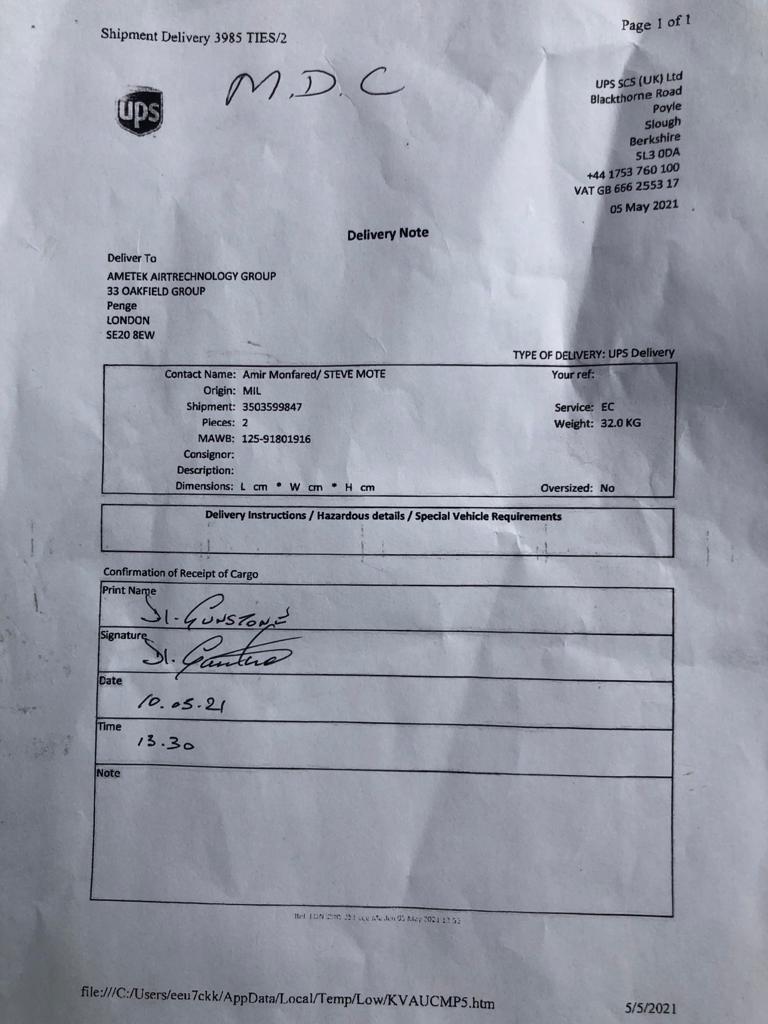 Shipment Delivery 3985 TIES/2
Page 1 of 1
M.D.C
ups
UPS SCS (UK) Ltd
Blackthorne Road
Poyle
Slough
Berkshire
SL3 0DA
+44 1753 760 100
VAT GB 666 2553 17
05 May 2021
Delivery Note
Deliver To
AMETEK AIRTRECHNOLOGY GROUP
33 OAKFIELD GROUP
Penge
LONDON
SE20 8EW
TYPE OF DELIVERY: UPS Delivery
Contact Name: Amir Monfared/ STEVE MOTE
Your ref:
Origin: MIL
Shipment: 3503599847
Service: EC
Pieces: 2
Weight: 32.0 KG
MAWB: 125-91801916
Consignor:
Description:
Dimensions: L cm * W cm * H cm
Oversized: No
Delivery Instructions / Hazardous details / Special Vehicle Requirements
Confirmation of Receipt of Cargo
Print Name
GUNSTONE
Signature
Date
10.05.21
Time
13.30
Note
file:///C:/Users/eeu7ckk/AppData/Local/Temp/Low/KVAUCMP5.htm
5/5/2021